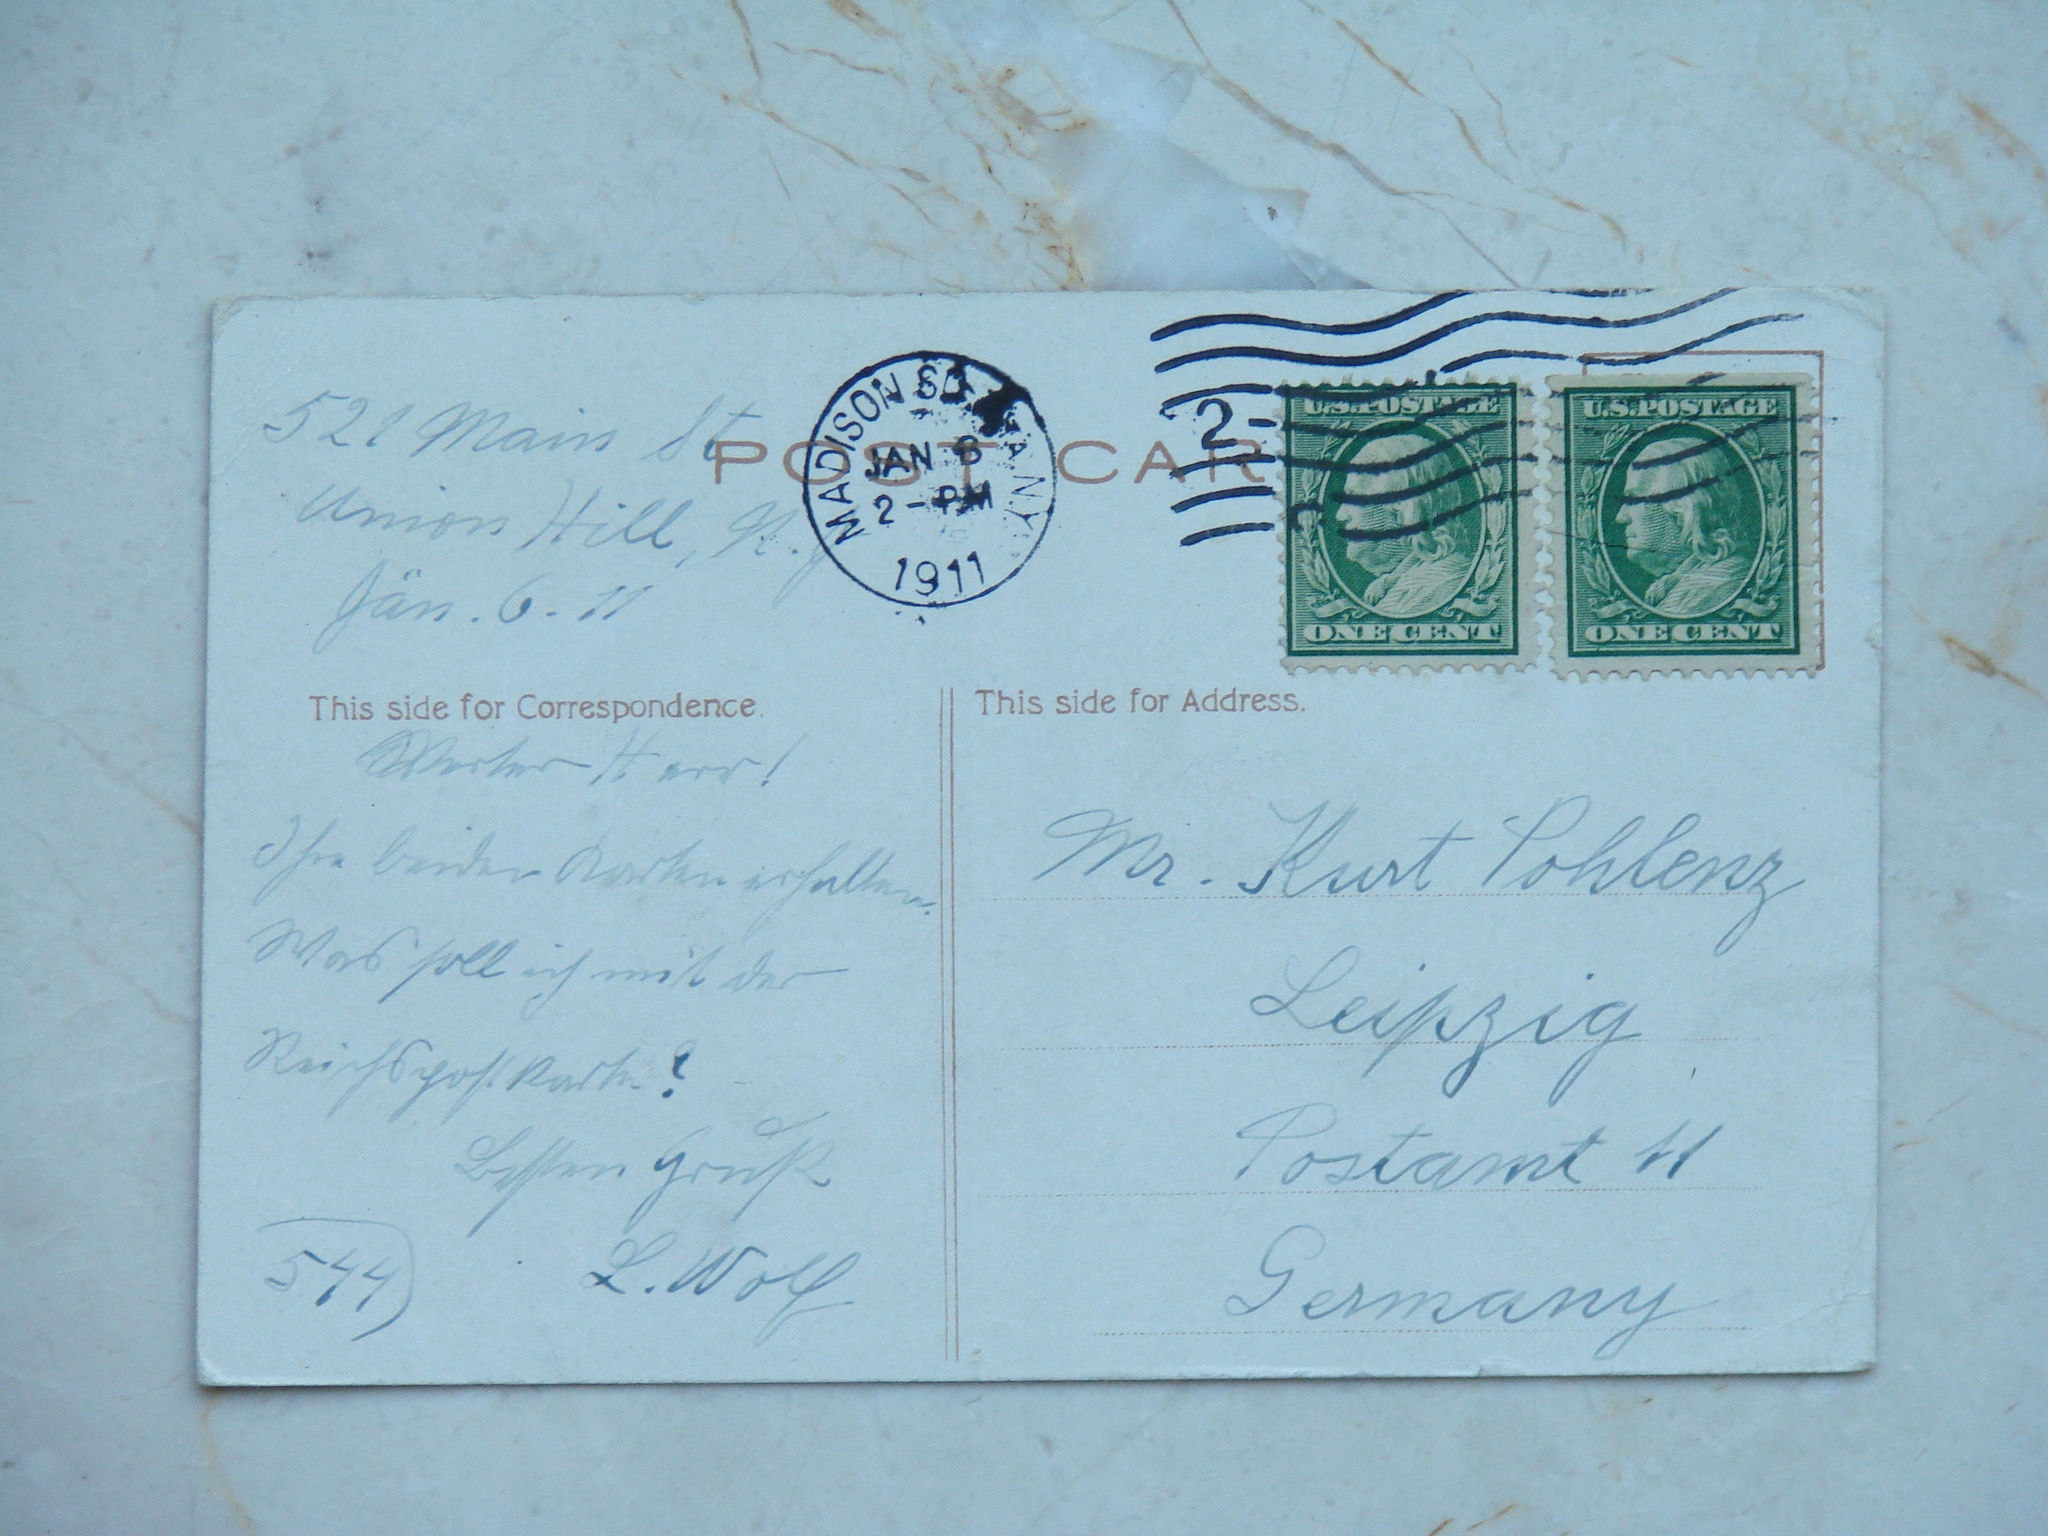 521 Main St
Union Hill, N. J
Jän. 6. 11
MADISON SQ. STA. N.Y.
JAN 8
2 - PM
1911
2
POST CAR
U.S.POSTAGE
ONE CENT
U.S.POSTAGE
ONE CENT
This side for Correspondence.
Werter Herr!
Ihre beiden Karten erhalten.
Was soll ich mit der
Reichspostkarte?
Besten Gruß
L. Wolf
544
This side for Address.
Mr. Kurt Pohlenz
Leipzig
Postamt 11
Germany